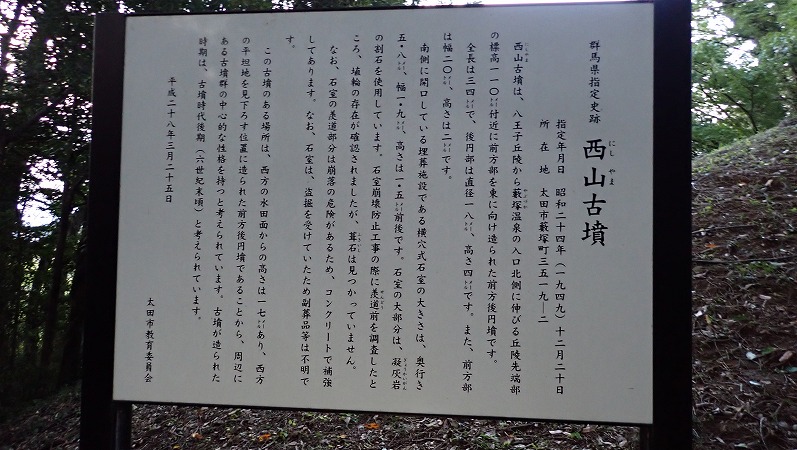 群馬県指定史跡
西山古墳
にし やま
指定年月日 昭和二十四年（一九四九）十二月二十日
所在地 太田市藪塚町三五一九―二
西山古墳は、八王子丘陵から藪塚温泉の入口北側に伸びる丘陵先端部
の標高一一〇メートル付近に前方部を東に向け造られた前方後円墳です。
全長は三四メートルで、後円部は直径一八メートル、高さ四メートルです。また、前方部
は幅二〇メートル、高さは二メートルです。
南側に開口している埋葬施設である横穴式石室の大きさは、奥行き
五・八メートル、幅一・九メートル、高さは一・五メートル前後です。石室の大部分は、凝灰岩
の割石を使用しています。石室崩壊防止工事の際に羨道前を調査したと
ころ、埴輪の存在が確認されましたが、葺石は見つかっていません。
なお、石室の羨道部分は崩落の危険があるため、コンクリートで補強
してあります。なお、石室は、盗掘を受けていたため副葬品等は不明で
す。
この古墳のある場所は、西方の水田面からの高さは一七メートルあり、西方
の平坦地を見下ろす位置に造られた前方後円墳であることから、周辺に
ある古墳群の中心的な性格を持つと考えられています。古墳が造られた
時期は、古墳時代後期（六世紀末頃）と考えられています。
平成二十八年三月二十五日
太田市教育委員会